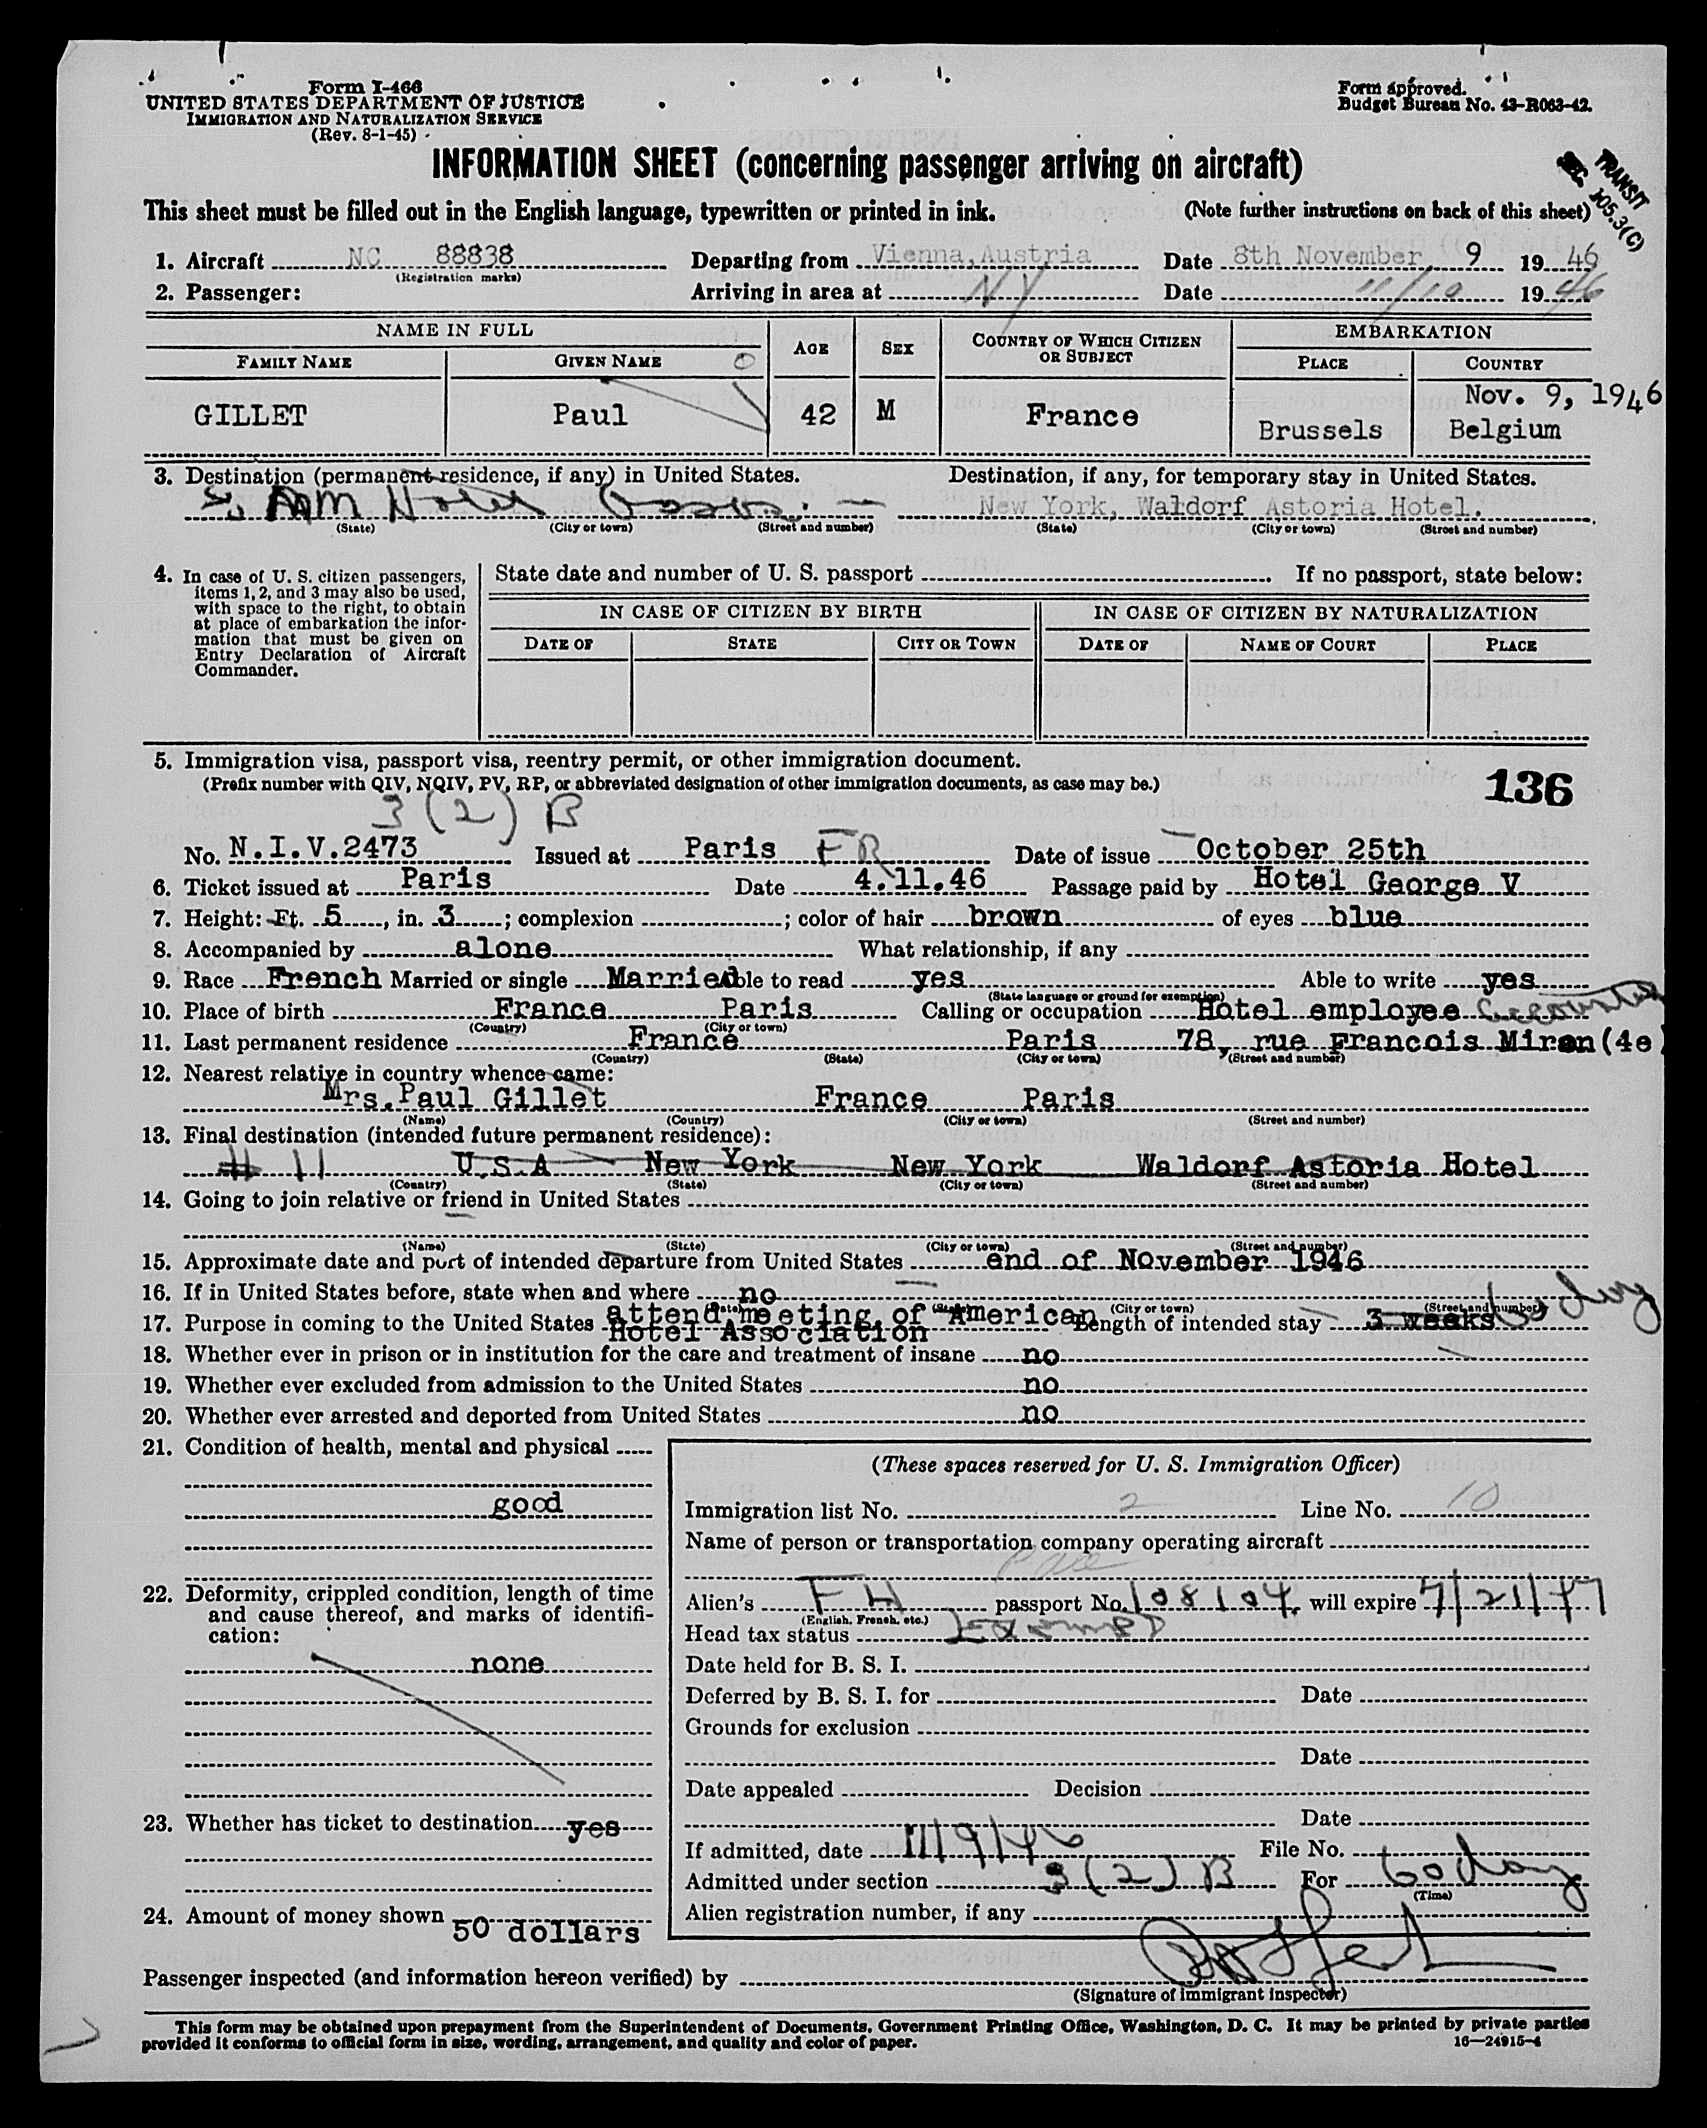 Form I-466
UNITED STATES DEPARTMENT OF JUSTICE
IMMIGRATION AND NATURALIZATION SERVICE
(Rev. 8-1-45)
Form approved.
Budget Bureau No. 43-R063-42.
INFORMATION SHEET (concerning passenger arriving on aircraft)
TRANSIT
SEC. 105.3(C)
This sheet must be filled out in the English language, typewritten or printed in ink. (Note further instructions on back of this sheet)
1. Aircraft NC 88838 Departing from Vienna, Austria Date 8th November 9 1946
(Registration marks)
2. Passenger: Arriving in area at NY Date 11/10 1946
NAME IN FULL AGE SEX COUNTRY OF WHICH CITIZEN OR SUBJECT EMBARKATION
FAMILY NAME GIVEN NAME PLACE COUNTRY
Nov. 9, 1946
GILLET Paul 42 M France Brussels Belgium
3. Destination (permanent residence, if any) in United States. Destination, if any, for temporary stay in United States.
New York, Waldorf Astoria Hotel.
(State) (City or town) (Street and number) (State) (City or town) (Street and number)
4. In case of U. S. citizen passengers, items 1, 2, and 3 may also be used, with space to the right, to obtain at place of embarkation the information that must be given on Entry Declaration of Aircraft Commander.
State date and number of U. S. passport . If no passport, state below:
IN CASE OF CITIZEN BY BIRTH IN CASE OF CITIZEN BY NATURALIZATION
DATE OF STATE CITY OR TOWN DATE OF NAME OF COURT PLACE
5. Immigration visa, passport visa, reentry permit, or other immigration document.
(Prefix number with QIV, NQIV, PV, RP, or abbreviated designation of other immigration documents, as case may be.)
136
3(2)B
No. N.I.V.2473 Issued at Paris FR Date of issue October 25th
6. Ticket issued at Paris Date 4.11.46 Passage paid by Hotel George V
7. Height: Ft. 5, in. 3; complexion ; color of hair brown of eyes blue
8. Accompanied by alone What relationship, if any
9. Race French Married or single Married Able to read yes Able to write yes
(State language or ground for exemption)
10. Place of birth France Paris Calling or occupation Hotel employee
(Country) (City or town)
11. Last permanent residence France Paris 78, rue Francois Miron (4e)
(Country) (State) (City or town) (Street and number)
12. Nearest relative in country whence came:
Mrs. Paul Gillet France Paris
(Name) (Country) (City or town) (Street and number)
13. Final destination (intended future permanent residence):
U.S.A New York New York Waldorf Astoria Hotel
(Country) (State) (City or town) (Street and number)
14. Going to join relative or friend in United States
(Name) (State) (City or town) (Street and number)
15. Approximate date and port of intended departure from United States end of November 1946
16. If in United States before, state when and where no
(Date) (State) (City or town) (Street and number)
17. Purpose in coming to the United States attend meeting of American Hotel Association Length of intended stay 3 weeks 60 day
18. Whether ever in prison or in institution for the care and treatment of insane no
19. Whether ever excluded from admission to the United States no
20. Whether ever arrested and deported from United States no
21. Condition of health, mental and physical
good
22. Deformity, crippled condition, length of time and cause thereof, and marks of identification:
none
23. Whether has ticket to destination yes
24. Amount of money shown 50 dollars
(These spaces reserved for U. S. Immigration Officer)
Immigration list No. 2 Line No. 10
Name of person or transportation company operating aircraft
Alien's FH passport No. 108104, will expire 7/21/47
(English, French, etc.)
Head tax status Exempt
Date held for B. S. I.
Deferred by B. S. I. for Date
Grounds for exclusion
Date
Date appealed Decision
Date
If admitted, date 11/9/46 File No.
Admitted under section 3(2)B For 60 day
(Time)
Alien registration number, if any
Passenger inspected (and information hereon verified) by
(Signature of immigrant inspector)
This form may be obtained upon prepayment from the Superintendent of Documents, Government Printing Office, Washington, D. C. It may be printed by private parties
provided it conforms to official form in size, wording, arrangement, and quality and color of paper. 16—24915-4